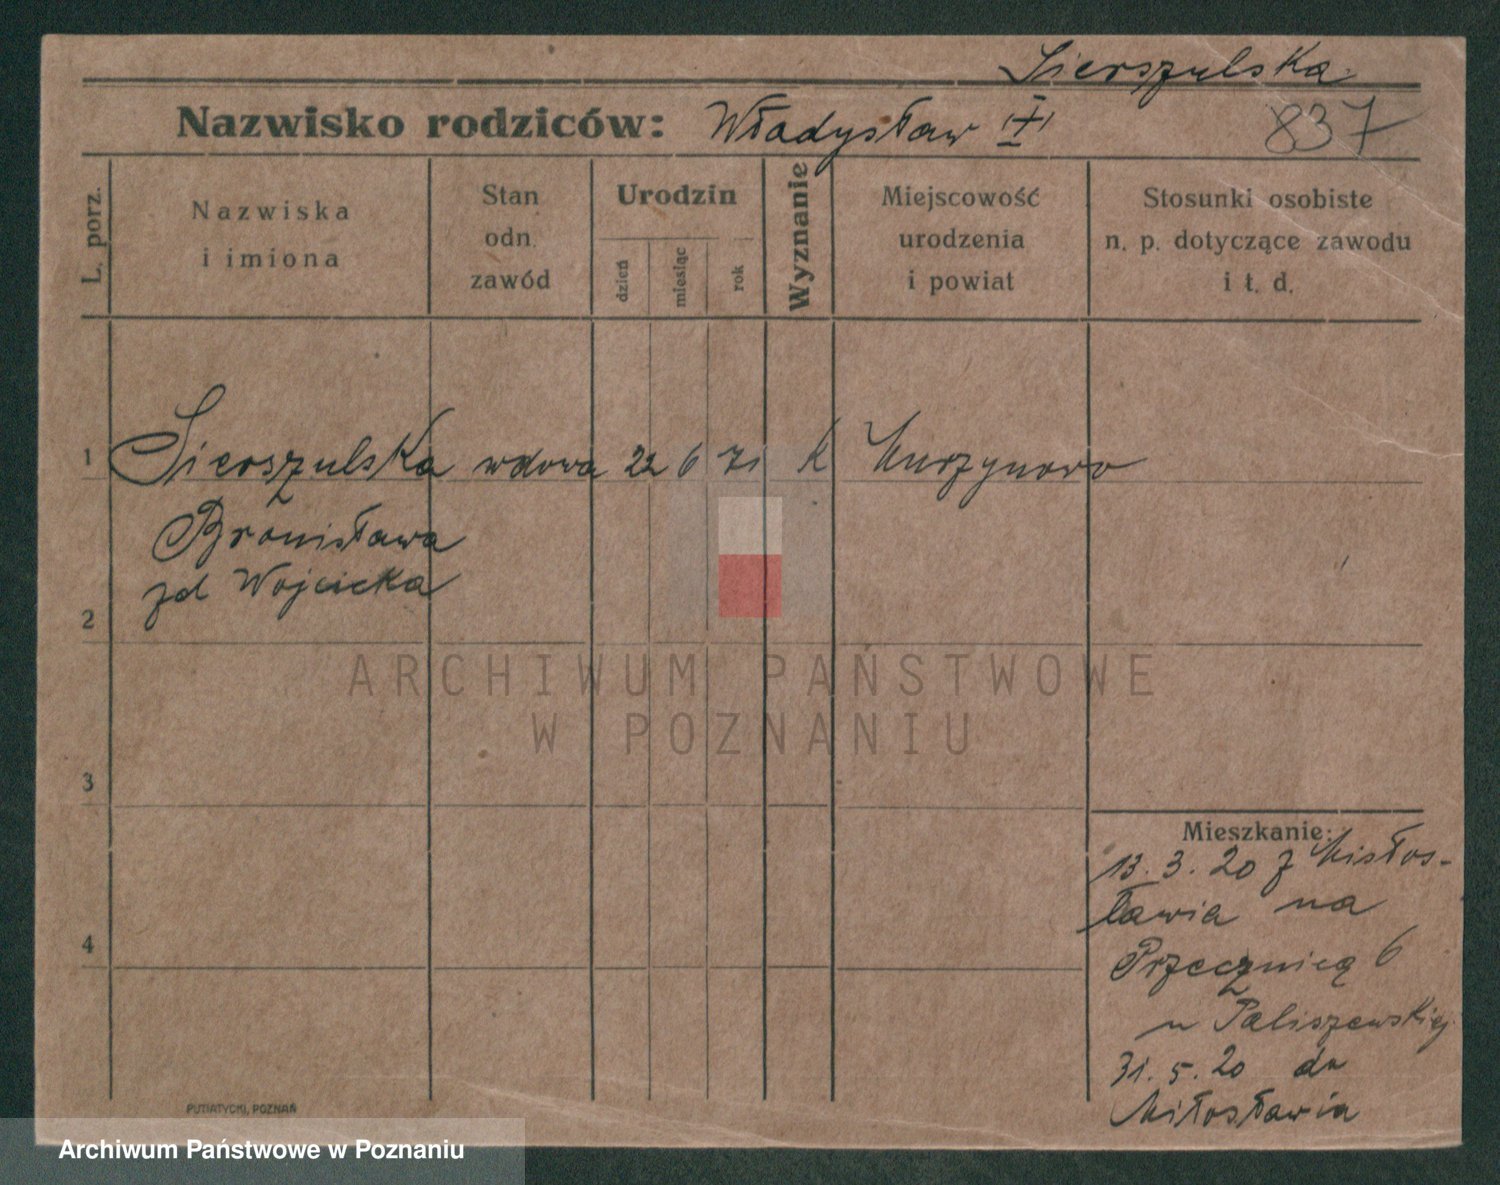 Sierszulska
Nazwisko rodziców: Władysław 837
L. porz.
Nazwiska
i imiona
Stan
odn.
zawód
Urodzin
dzień
miesiąc
rok
Wyznanie
Miejscowość
urodzenia
i powiat
Stosunki osobiste
n. p. dotyczące zawodu
i t. d.
1 Sierszulska wdowa 22 6 71 k Murzynowo
Bronisława
zd Wojcicka
2
3
4
Mieszkanie:
13. 3. 20 z Misłos-
ławia na
Przecznicą 6
u Paliszewskiej
31. 5. 20 do
Miłosławia
PUTIATYCKI, POZNAŃ
ARCHIWUM PAŃSTWOWE
W POZNANIU
Archiwum Państwowe w Poznaniu